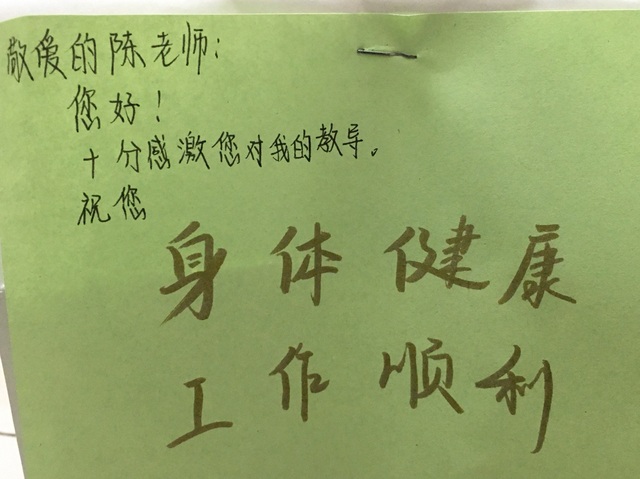 敬爱的陈老师:
您好!
十分感激您对我的教导。
祝您
身体健康
工作顺利